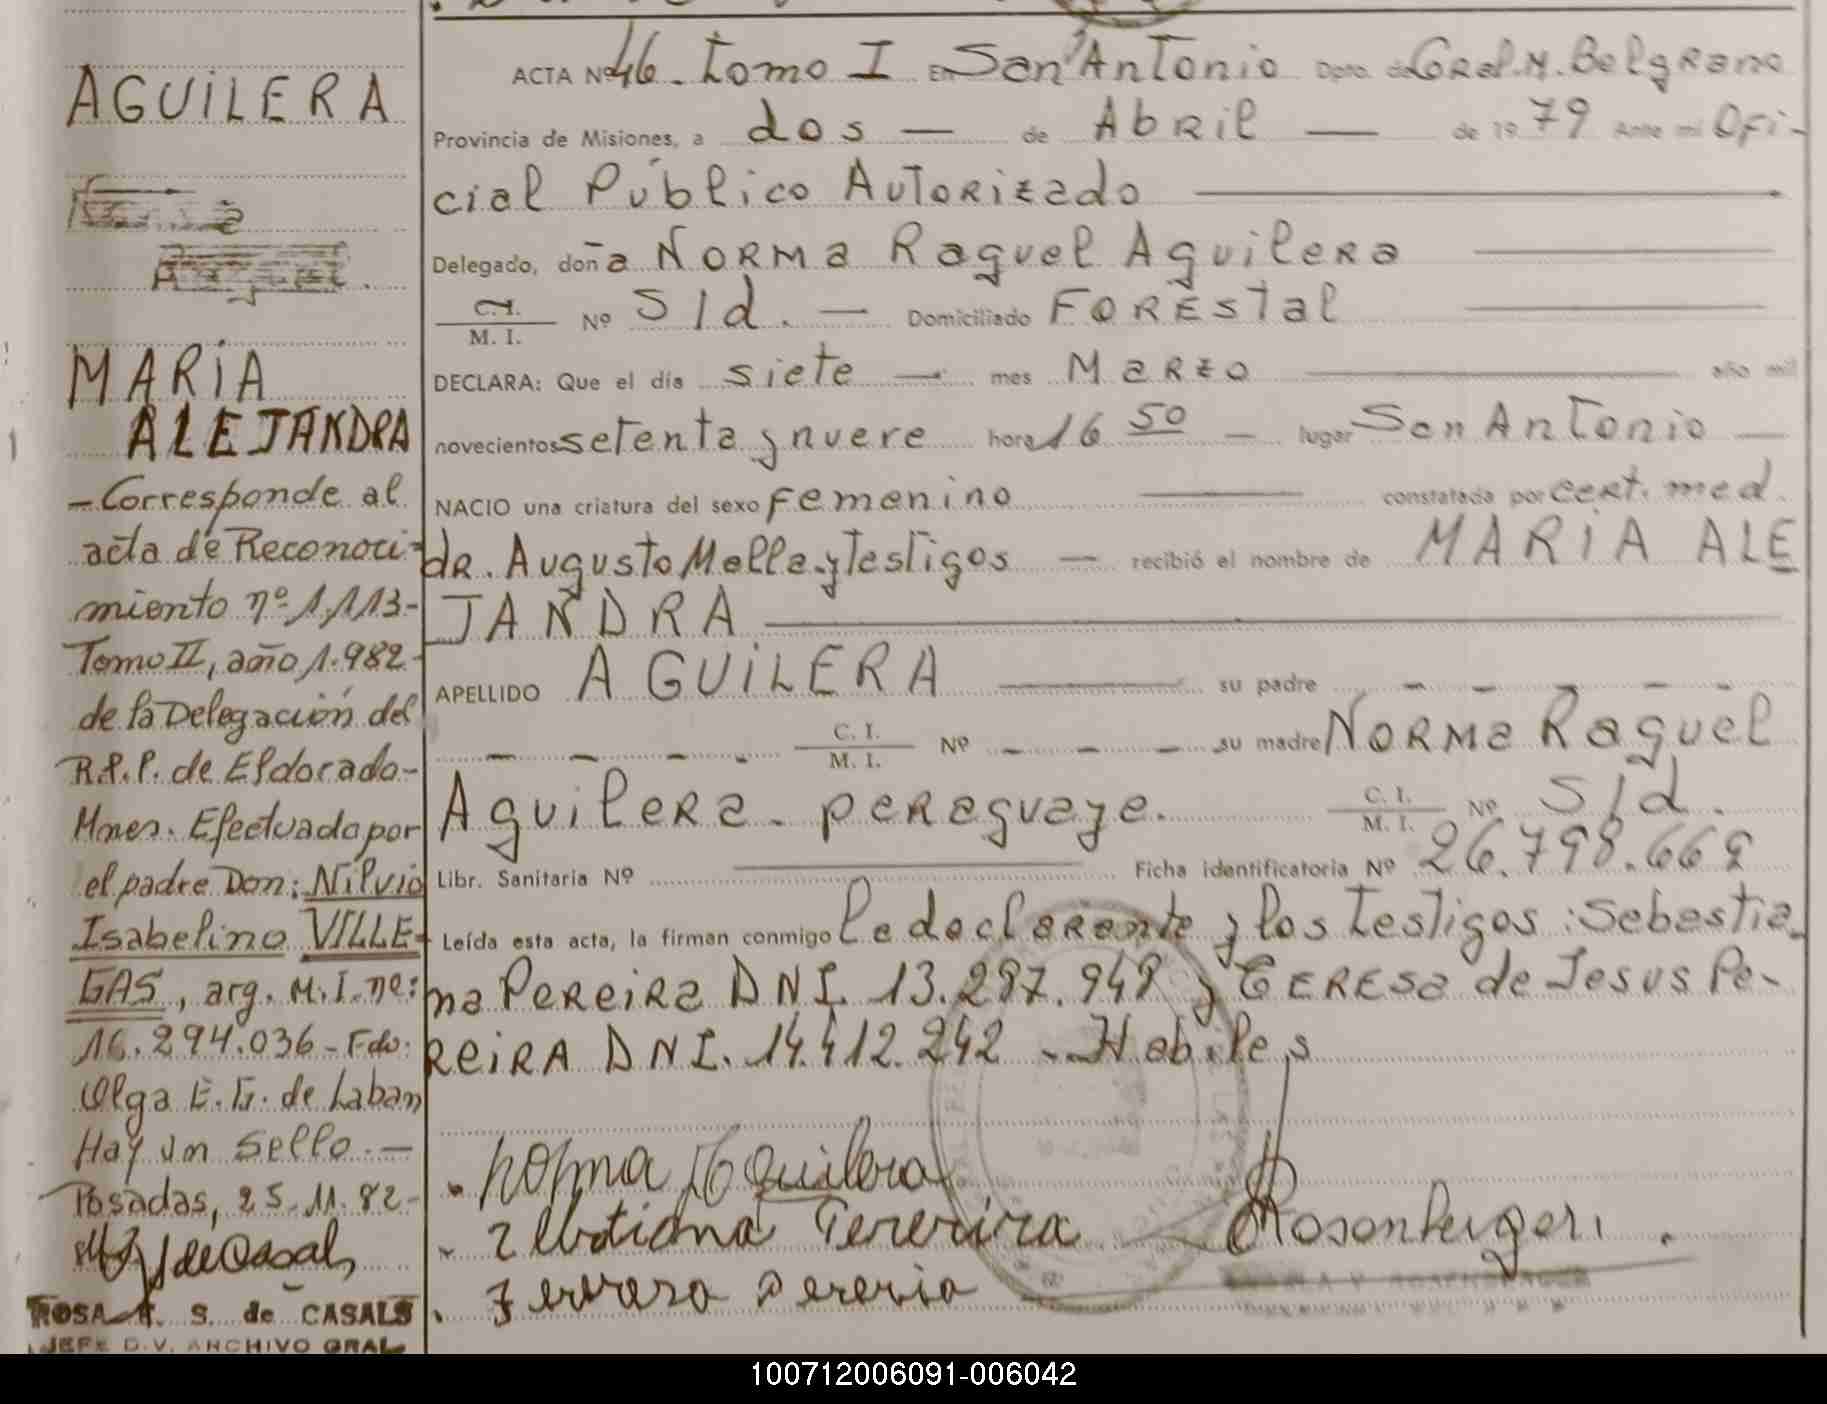 AGUILERA
MARIA
ALEJANDRA
- Corresponde al
acta de Reconoci-
miento nº 1.113-
Tomo II, año 1.982-
de la Delegación del
R.P.P. de Eldorado-
Mnes. Efectuado por
el padre Don: Nilvio
Isabelino VILLE-
GAS, arg. M.I. nº:
16.294.036 - Fdo:
Olga E. G. de Laban
Hay un Sello. —
Posadas, 25-11-82-
ROSA H. S. de CASALS
JEFE D.V. ARCHIVO GRAL
ACTA Nº 46. Tomo I En San Antonio Dpto. de Gral. M. Belgrano
Provincia de Misiones, a dos — de Abril — de 19 79 Ante mi Ofi-
cial Público Autorizado
Delegado, doña NORMA Raquel Aguilera
C.I. / M.I. Nº S/d. — Domiciliado FORESTal
DECLARA: Que el día siete — mes Marzo año mil
novecientos setenta y nueve hora 16 50 — lugar San Antonio —
NACIO una criatura del sexo Femenino constatada por cert. med.
dr. Augusto Molla y Testigos — recibió el nombre de MARIA ALE
JANDRA
APELLIDO AGUILERA su padre - - - - -
- - - - C.I. / M.I. Nº - - - su madre NORMA Raquel
Aguilera - paraguaya. C.I. / M.I. Nº S/d.
Libr. Sanitaria Nº Ficha identificatoria Nº 26.798.669
Leída esta acta, la firman conmigo la declarante y los Testigos: Sebastia-
na Pereira DNI. 13.297.948 y TERESA de Jesus Pe-
REIRA DNI. 14.412.242 - Habiles
Norma R Aguilera
Rosenberger
100712006091-006042